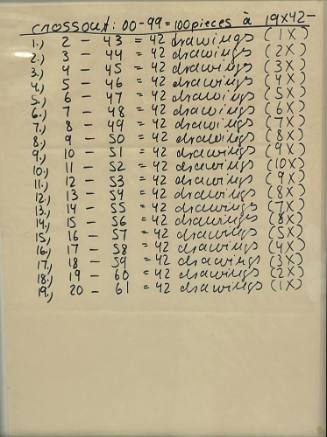 crossout: 00-99=100 pieces à 19x42-
1.) 2 - 43 = 42 drawings (1X)
2.) 3 - 44 = 42 drawings (2X)
3.) 4 - 45 = 42 drawings (3X)
4.) 5 - 46 = 42 drawings (4X)
5.) 6 - 47 = 42 drawings (5X)
6.) 7 - 48 = 42 drawings (6X)
7.) 8 - 49 = 42 drawings (7X)
8.) 9 - 50 = 42 drawings (8X)
9.) 10 - 51 = 42 drawings (9X)
10.) 11 - 52 = 42 drawings (10X)
11.) 12 - 53 = 42 drawings (9X)
12.) 13 - 54 = 42 drawings (8X)
13.) 14 - 55 = 42 drawings (7X)
14.) 15 - 56 = 42 drawings
15.) 16 - 57 = 42 drawings (5X)
16.) 17 - 58 = 42 drawings (4X)
17.) 18 - 59 = 42 drawings (3X)
18.) 19 - 60 = 42 drawings (2X)
19.) 20 - 61 = 42 drawings (1X)